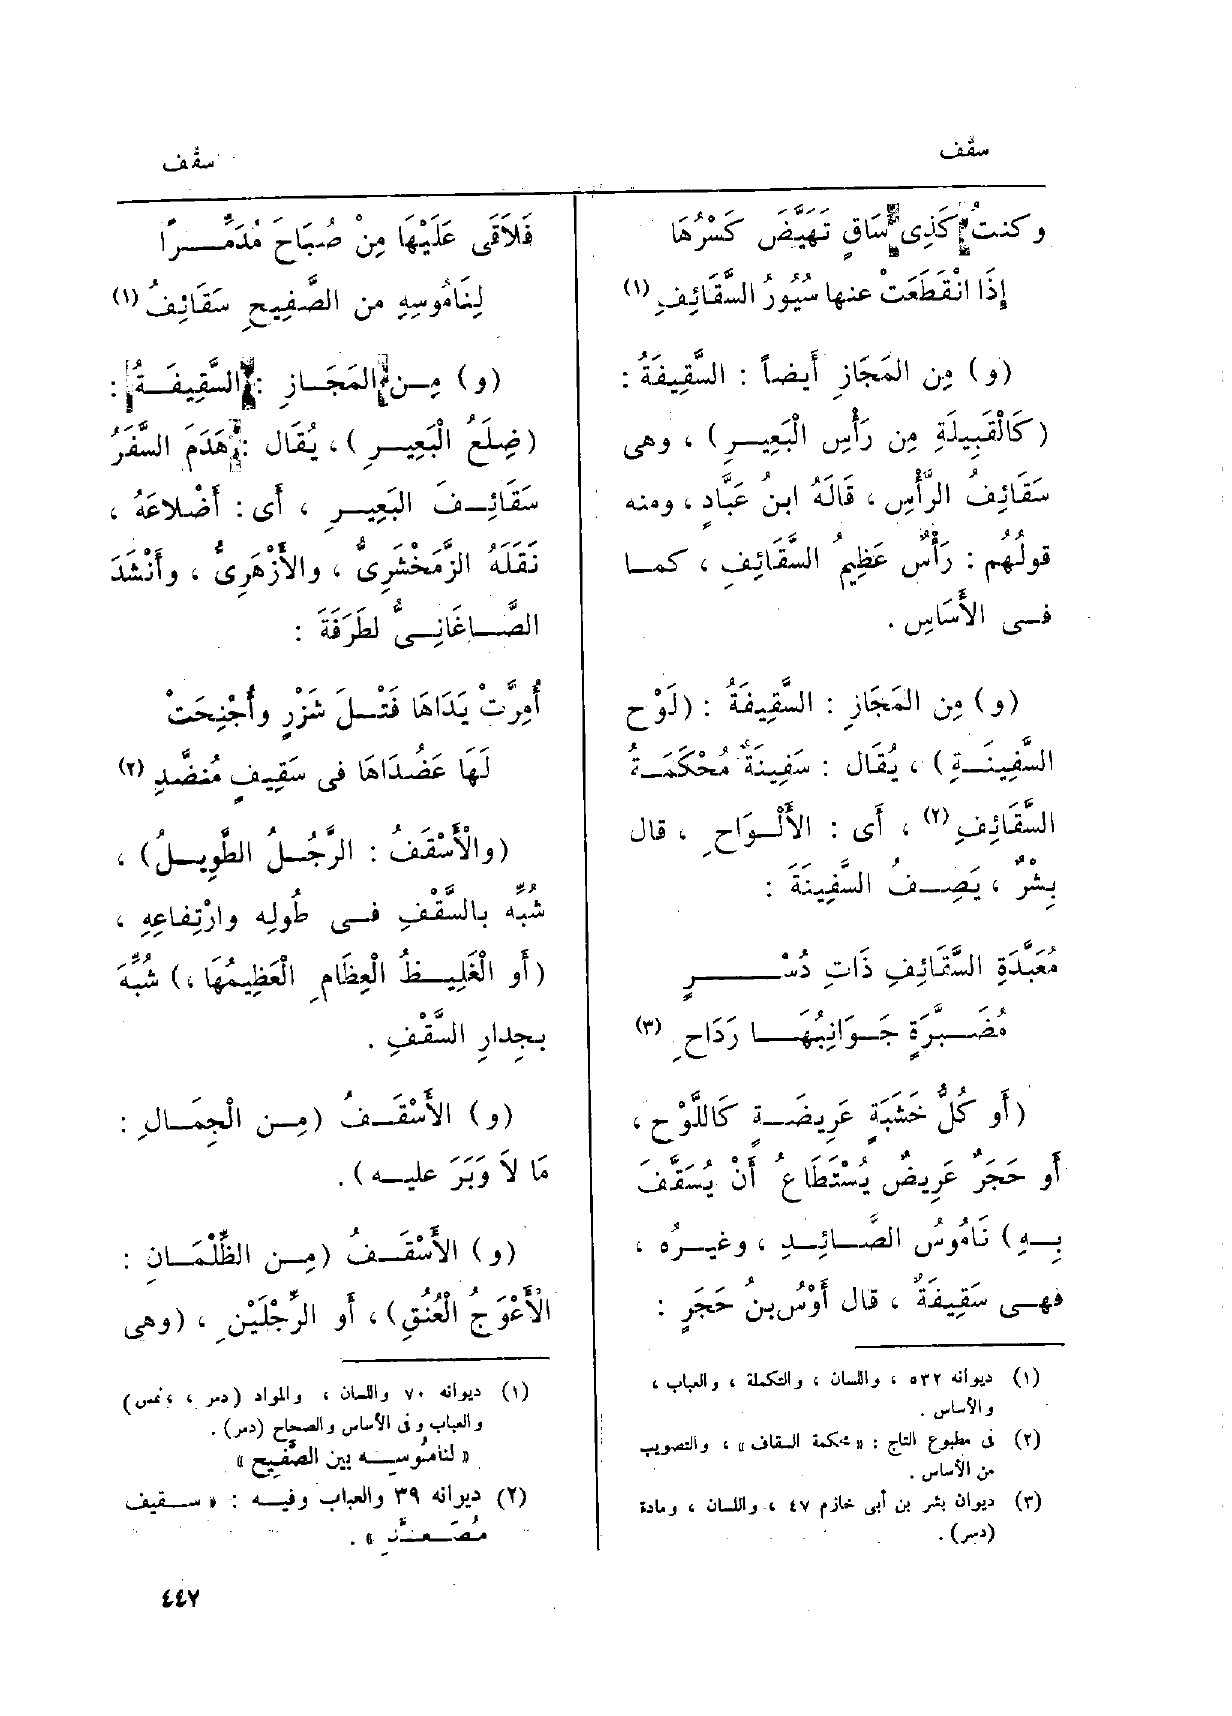 سقف
سقف
وكنتُ كَذِى سَاقٍ تَهَيَّضَ كَسْرُهَا
إِذَا انْقَطَعَتْ عنها سُيُورُ السَّقَائِفِ (١)
(و) مِن المَجَازِ أَيضاً : السَّقِيفَةُ :
(كَالْقَبِيلَةِ مِن رَأْسِ الْبَعِيــرِ) ، وهى
سَقَائِفُ الرَّأْسِ ، قَالَهُ ابنُ عَبَّادٍ ، ومنه
قولُهُم : رَأْسٌ عَظِيمُ السَّقَائِفِ ، كمـا
فــى الأَسَاسِ .
(و) مِن المَجَازِ : السَّقِيفَةُ : (لَوْح
السَّفِينَــةِ) ، يُقَال : سَفِينَةٌ مُحْكَمَــةُ
السَّقَائِفِ (٢) ، أَى : الأَلْــوَاحِ ، قال
بِشْرٌ ، يَصِــفُ السَّفِينَةَ :
مُعَبَّدَةِ السَّقَائِفِ ذَاتِ دُسْــــرٍ
مُضَــبَّرَةٍ جَــوَانِبُهَــا رَدَاحِ (٣)
(أَو كُلُّ خَشَبَةٍ عَرِيضَــةٍ كَاللَّوْحِ ،
أَو حَجَرٌ عَرِيضٌ يُسْتَطَاعُ أَنْ يُسَقَّفَ
بِــهِ) نَامُوسُ الصَّــائِــدِ ، وغيرُه ،
فهــى سَقِيفَةٌ ، قال أَوْسُ بنُ حَجَرٍ :
(١) ديوانه ٥٣٢ ، واللسان ، والتكملة ، والعباب ،
والأساس .
(٢) فى مطبوع التاج : « محكمة السقاف » ، والتصويب
من الأساس .
(٣) ديوان بشر بن أبى خازم ٤٧ ، واللسان ، ومادة
(دسر) .
فَلَاقَى عَلَيْهَا مِنْ صُبَاحَ مُدَمِّــرًا
لِنَامُوسِهِ من الصَّفِيحِ سَقَائِفُ (١)
(و) مِــن المَجَــازِ : السَّقِيفَــةُ :
(ضِلَعُ الْبَعِيــرِ) ، يُقَال : هَدَمَ السَّفَرُ
سَقَائِــفَ البَعِيــرِ ، أَى : أَضْلاعَهُ ،
نَقَلَهُ الزَّمَخْشَرِىُّ ، والأَزْهَرِىُّ ، وأَنْشَدَ
الصَّــاغَانِــىُّ لطَرَفَةَ :
أُمِرَّتْ يَدَاهَا فَتْــلَ شَزْرٍ وأُجْنِحَتْ
لَهَا عَضُدَاهَا فى سَقِيفٍ مُنضَّدِ (٢)
(والْأَسْقَفُ : الرَّجُــلُ الطَّوِيــلُ) ،
شُبِّه بالسَّقْفِ فــى طُولِه وارْتِفاعِهِ ،
(أَو الْغَلِيــظُ الْعِظَامِ الْعَظِيمُهَا ،) شُبِّهَ
بجِدارِ السَّقْفِ .
(و) الأَسْقَــفُ (مِــن الْجِمَــالِ :
مَا لَا وَبَرَ عليــه) .
(و) الأَسْقَــفُ (مِــن الظِّلْمَــانِ :
الْأَعْوَجُ الْعُنُقِ) ، أَو الرِّجْلَيْنِ ، (وهى
(١) ديوانه ٧٠ واللسان ، والمواد (دمر ، نمس)
والعباب وفى الأساس والصحاح (دمر) .
« لنامُوســه بين الصَّفيح »
(٢) ديوانه ٣٩ والعباب وفيــه : « ســقيف
مُصَعَّد » .
٤٤٧